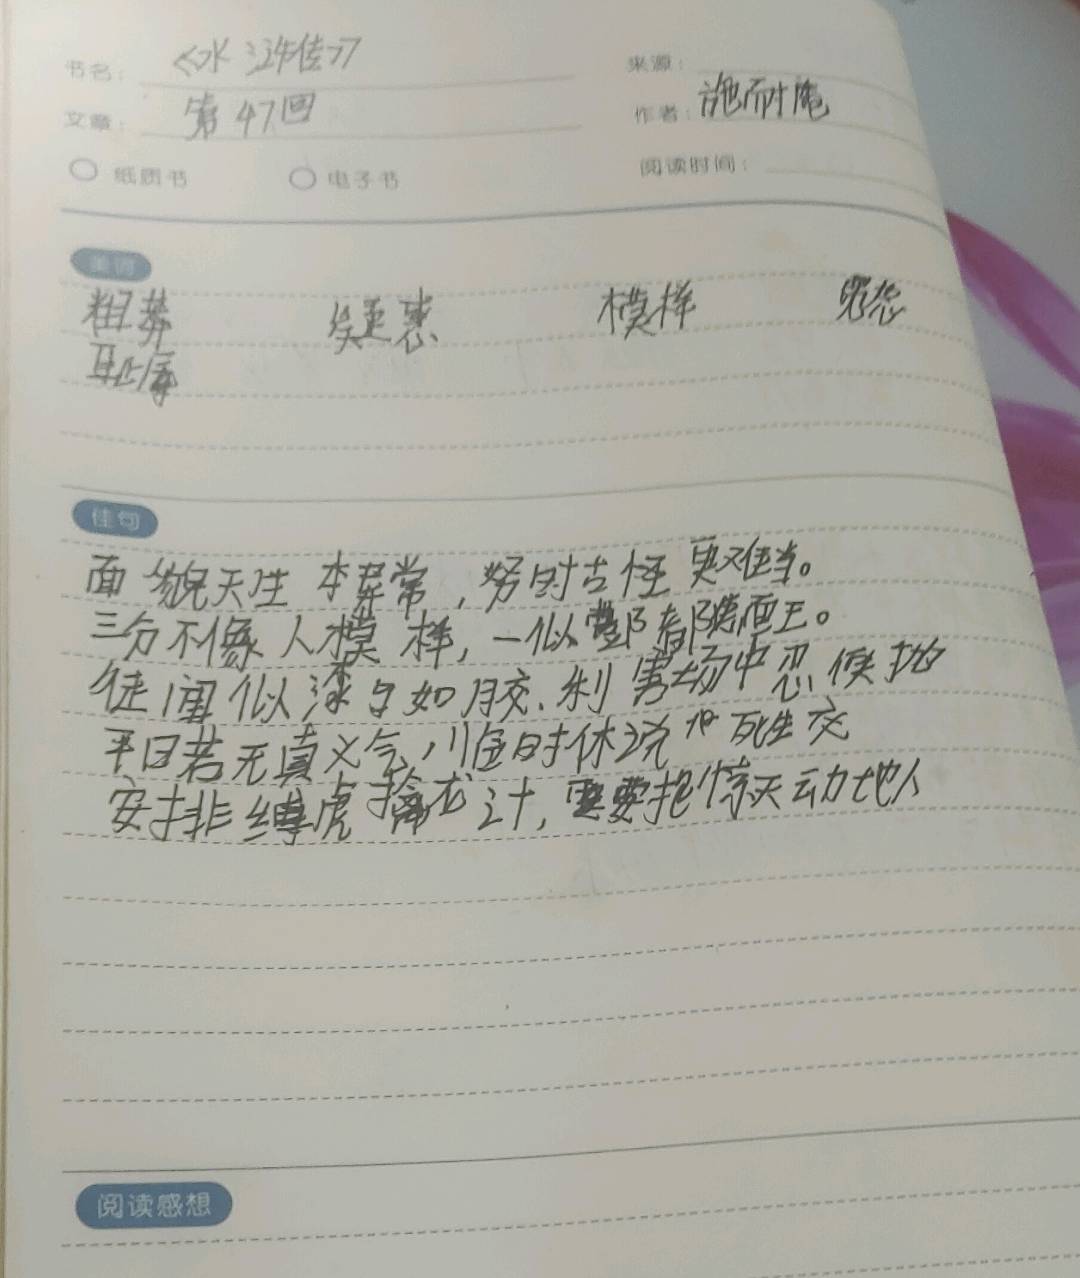 书名： 《水浒传》 来源：
文章： 第47回 作者： 施耐庵
纸质书 电子书 阅读时间：
美词
粗莽 模样
耻辱
佳句
面貌天生本异常，时古怪更难当。
三分不像人模样，一似酆都王。
徒闻似漆与如胶、利害场中忍候抛
平日若无真义气，临时休说死生交
安排缚虎擒龙计，要把惊天动地人
阅读感想